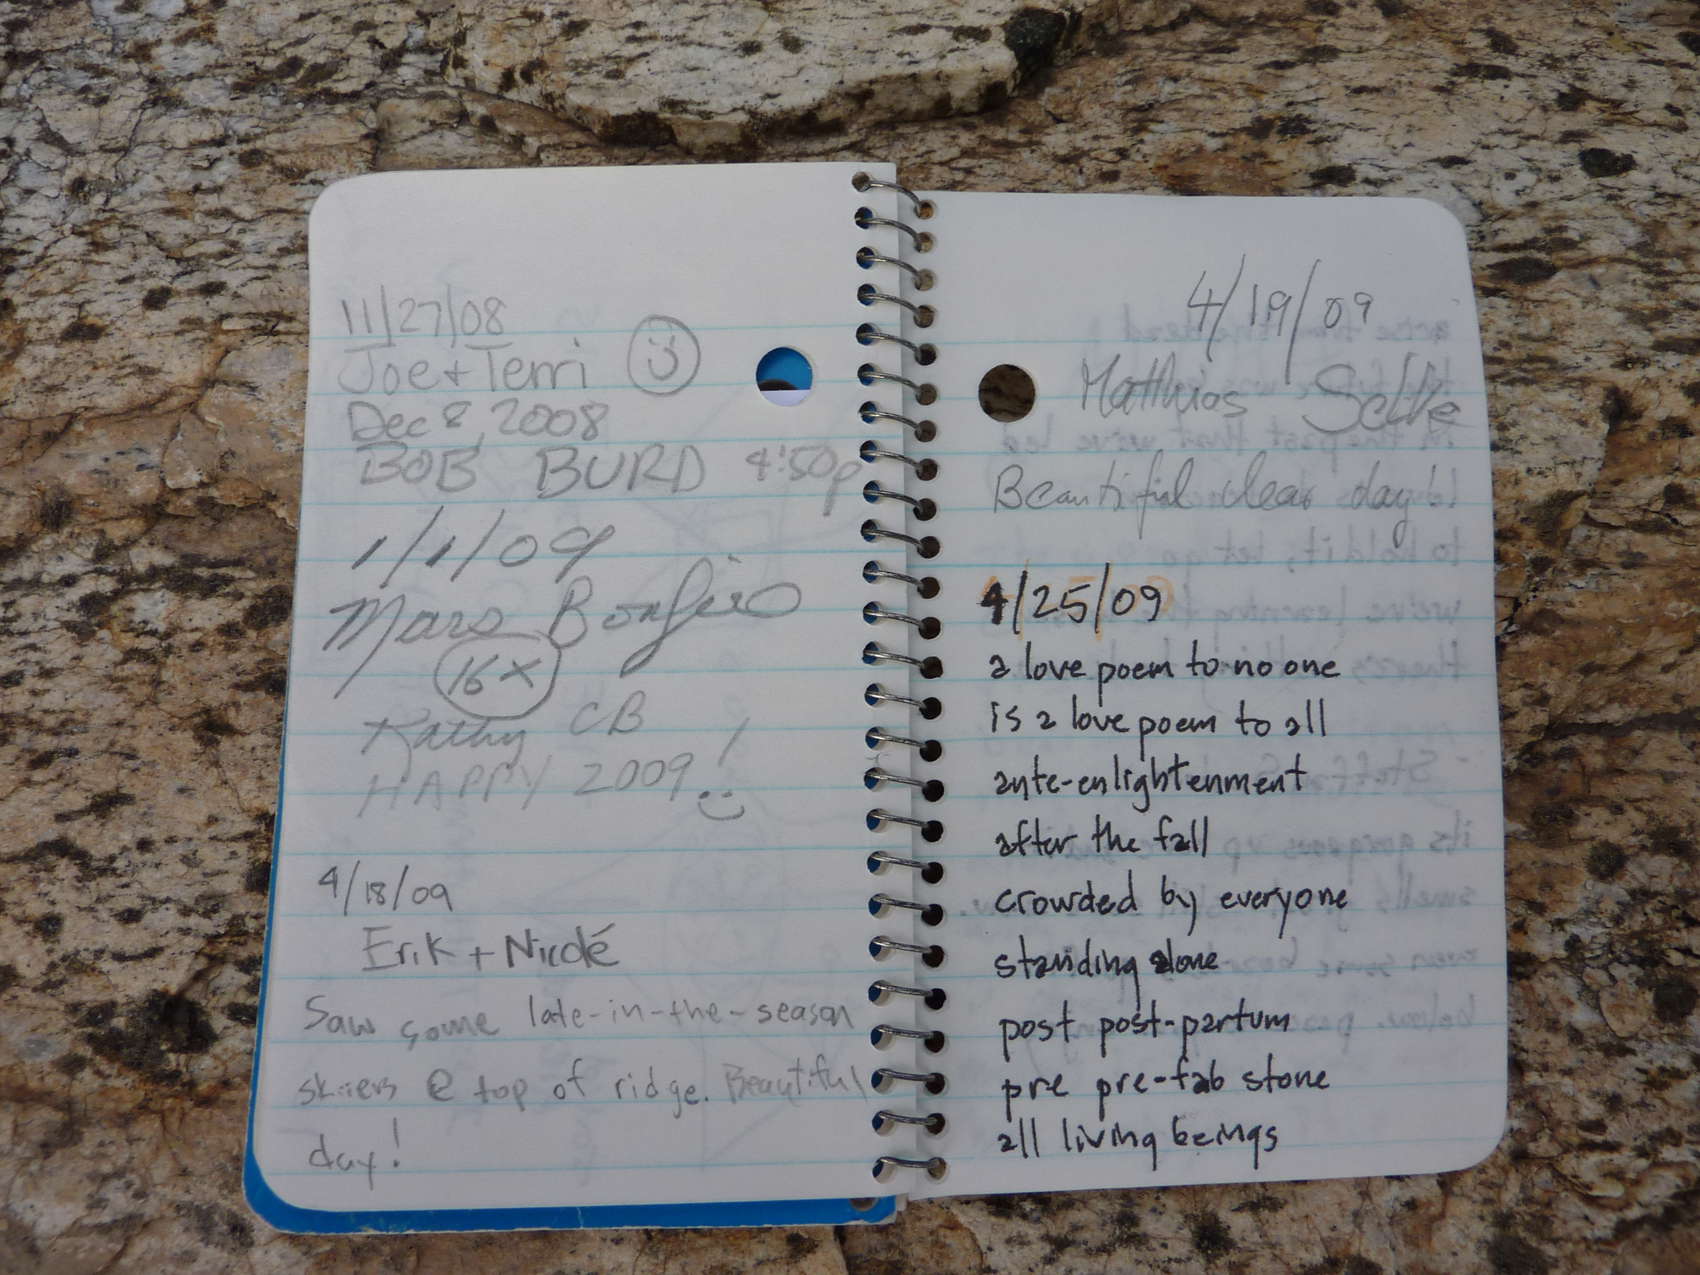 11/27/08
Joe + Terri
Dec 8, 2008
BOB BURD 4:50p
1/1/09
Mars Bonfire
16x
Kathy CB
HAPPY 2009!
4/18/09
Erik + Nicole
Saw some late-in-the-season
skiers @ top of ridge. Beautiful
day!
4/19/09
Matthias Selke
Beautiful clear day!!
4/25/09
a love poem to no one
is a love poem to all
ante-enlightenment
after the fall
crowded by everyone
standing alone
post post-partum
pre pre-fab stone
all living beings